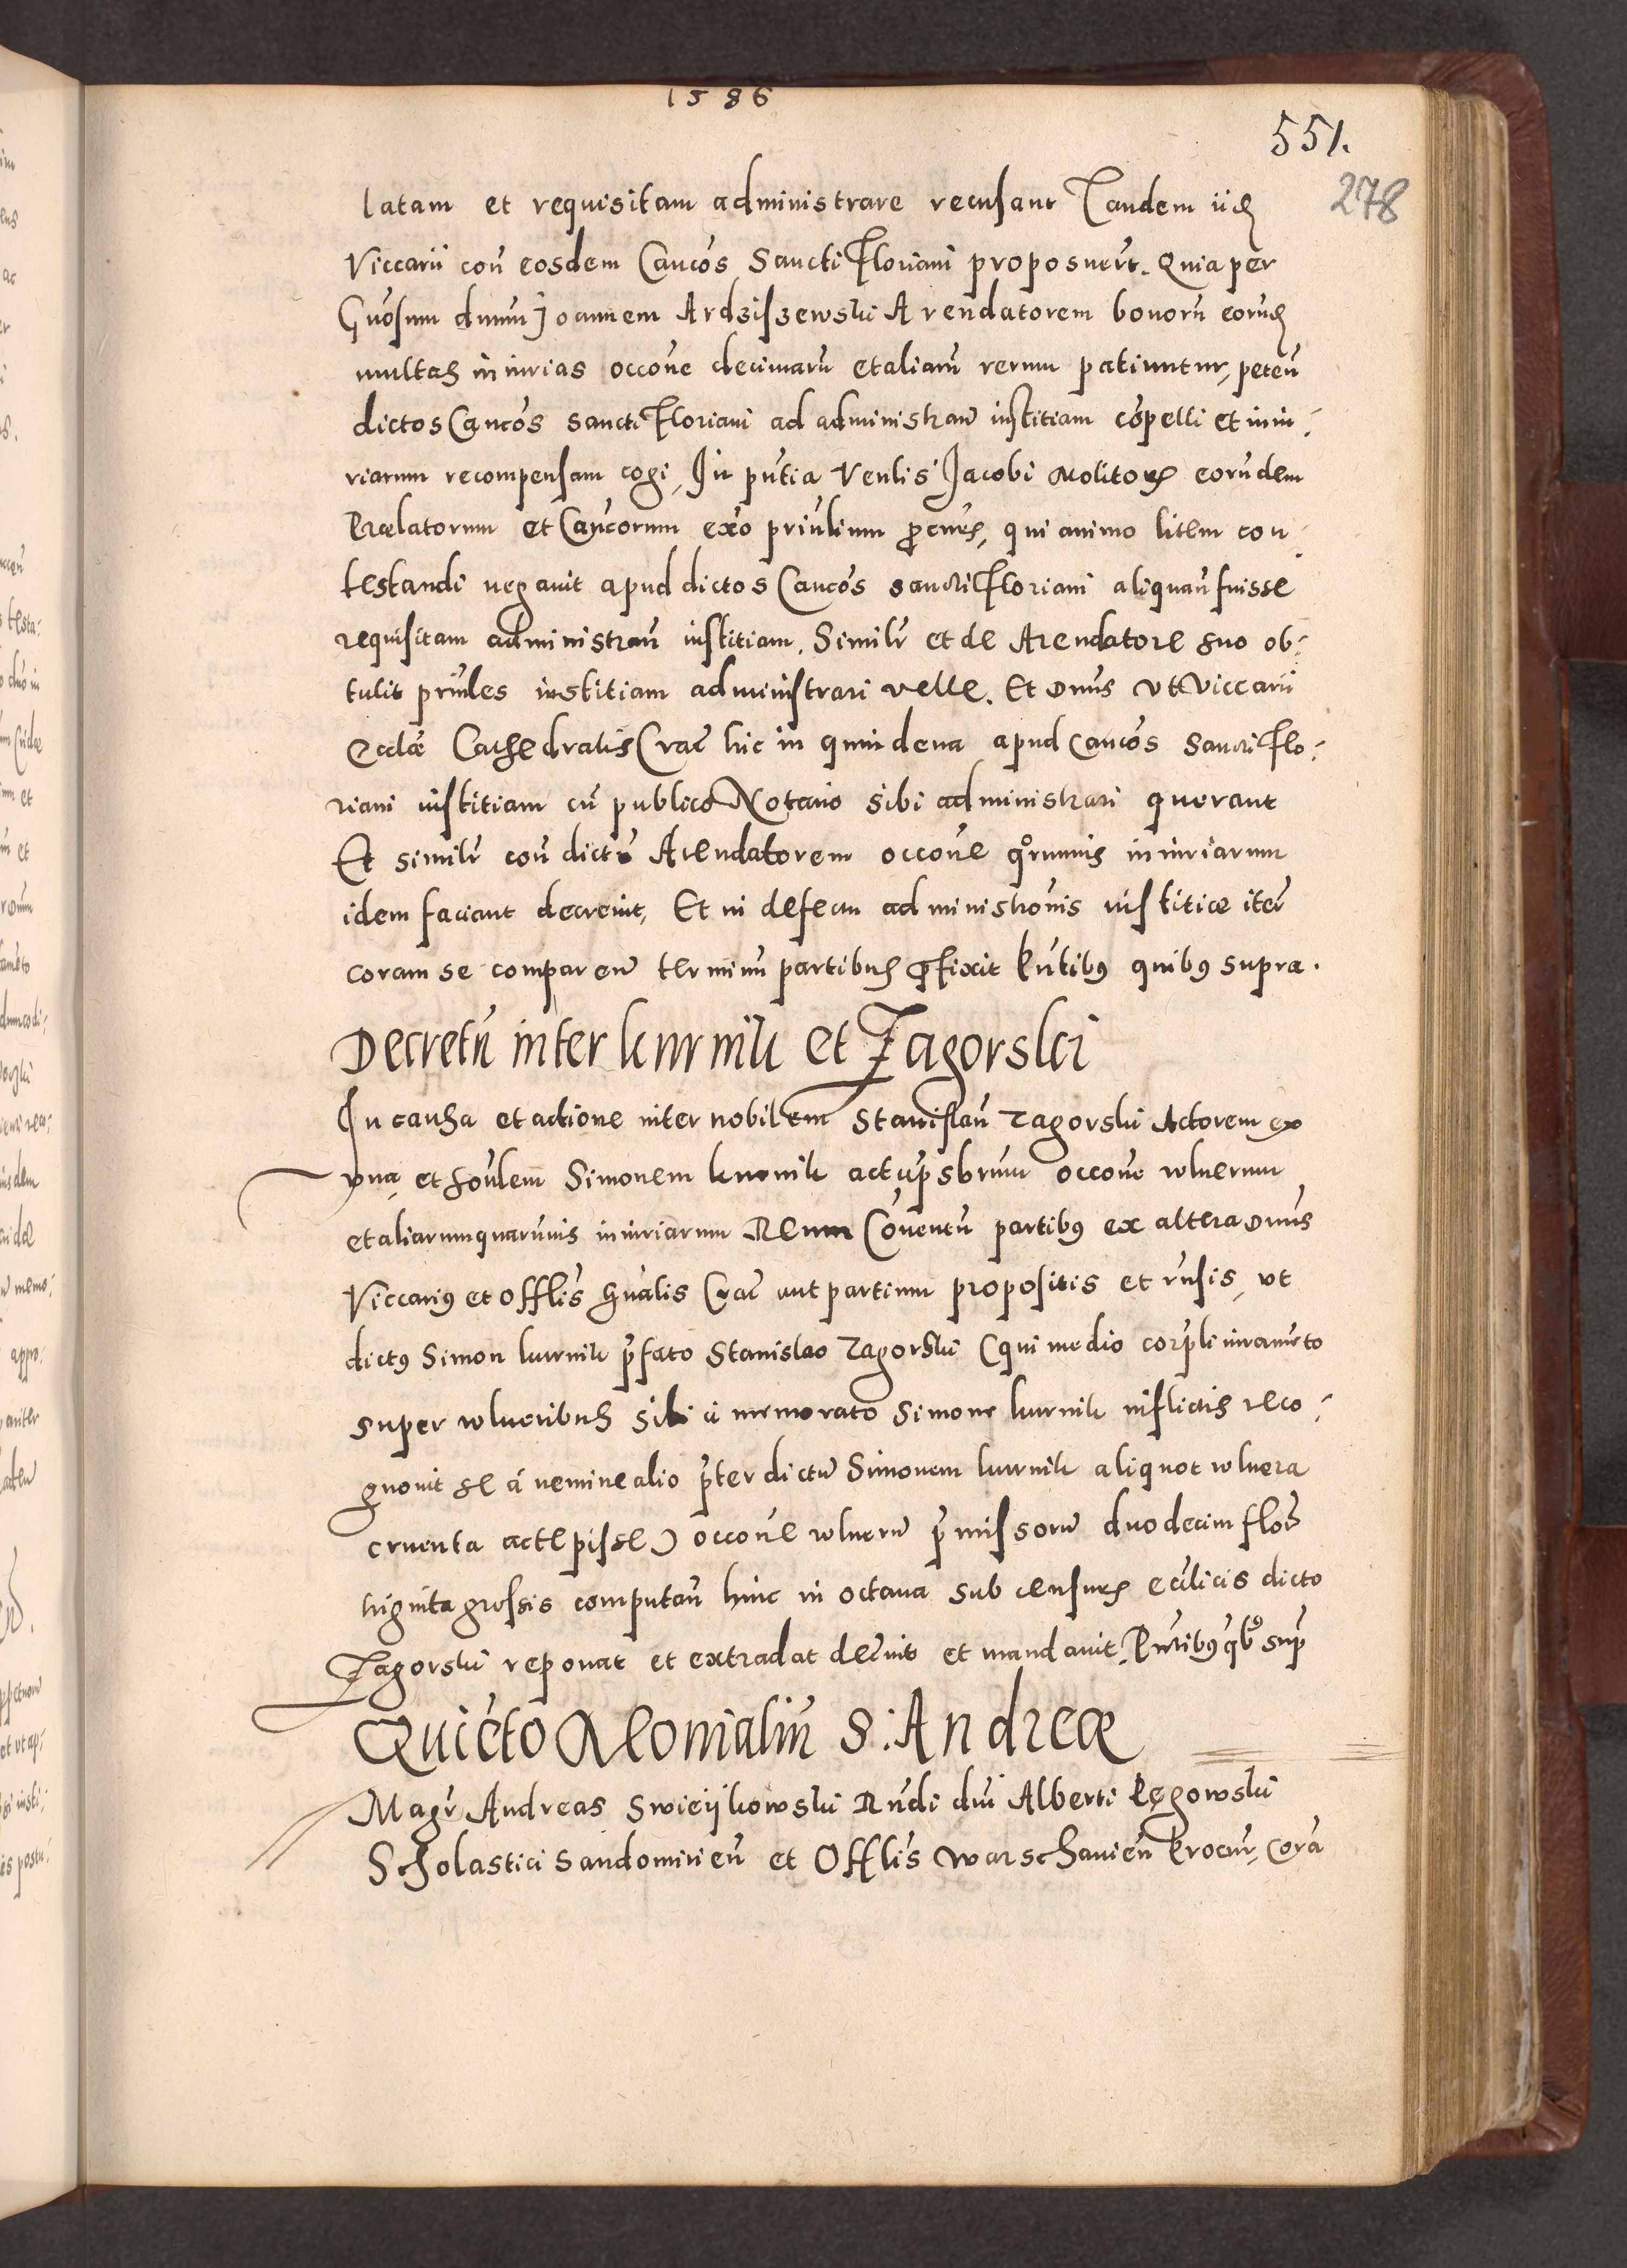 1586
551.
278
latam et requisitam administrare recusant Tandem iid
Viccarii con̄ eosdem Canc̄os Sancti Floriani proposuer̄t. Quia per
Gn̄osum dn̄um Joannem Ardziszewski Arendatorem bonorū eorūd
multas iniurias occōne decimarū et aliarū rerum patiuntur, peteñ
dictos Canc̄os sancti Floriani ad administrañ iustitiam cōpelli et iniu-
riarum recompensam cogi, In pn̄tia Ven̄lis Jacobi Molitoris eorūdem
Prælatorum et Canc̄orum ex̄o priūlium procuris, qui animo litem con
testandi negauit apud dictos Canc̄os sancti Floriani aliquañ fuisse
requisitam administrañ iustitiam. Similr̄ et de Arendatore suo ob-
tulit priūles iustitiam administrari velle. Et Dnūs vt Viccarii
Eccl̄æ Cathedralis Crac̄ hic in quindena apud Canc̄os Sancti Flo-
riani iustitiam cū publico Notario sibi administrari querant
Et similr̄ con̄ dictū Arendatorem occōne qōrumuis iniuriarum
idem faciant decreuit, Et in defectu administrōnis iustitiæ iter̄
coram se compareñ terminū partibus præfixit Pn̄tibus quibus supra.
Decretū inter kurnik et Zagorski
In causa et actione inter nobilem Stanislaū Zagorski Actorem ex
vna, et Simonem kurnik occōne vulnerum
et aliarumquarūuis iniuriarum Reum Cōuentū partibus ex altera Dnūs
Viccarius et Offl̄is Gn̄alis Crac̄ partium propositis et vt
dictus Simon kurnik p̄fato Stanislao Zagorski (qui medio corp̄li iuramēto
super vulneribus sibi à memorato Simone kurnik inflictis reco-
gnouit se à nemine alio p̄ter dictū Simonem kurnik aliquot vulnera
cruenta accepisse) occōne vulnerū p̄missorū duodecim flor̄
triginta grossis computañ hinc in octaua sub censuris eccl̄icis dicto
Zagorski reponat et extradat decr̄uit et mandauit. Pn̄tibus qbus sup̄
Quiet̄o Monialiū S: Andreæ
Magr̄ Andreas Swieykowski Rn̄di dn̄i Alberti Pęgowski
Scholastici Sandomirieñ et Offl̄is Warschauieñ Procur̄, corā